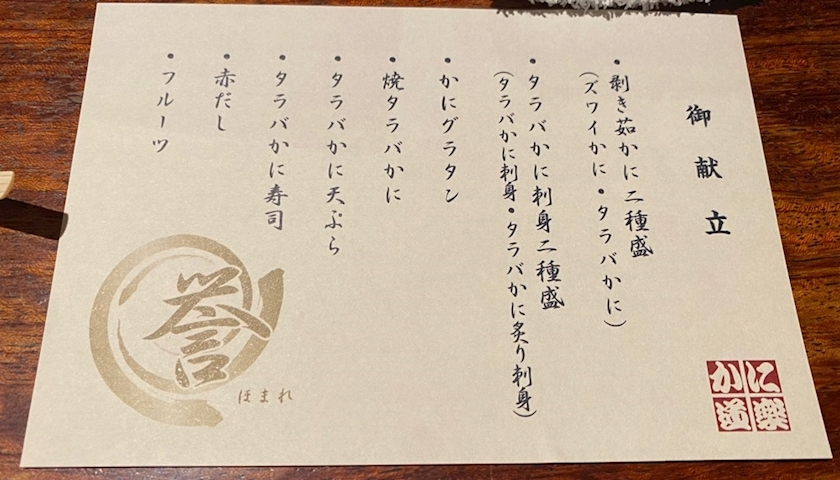 御献立
・剥き茹かに二種盛
(ズワイかに・タラバかに)
・タラバかに刺身二種盛
(タラバかに刺身・タラバかに炙り刺身)
・かにグラタン
・焼タラバかに
・タラバかに天ぷら
・タラバかに寿司
・赤だし
・フルーツ
誉
ほまれ
かに道樂